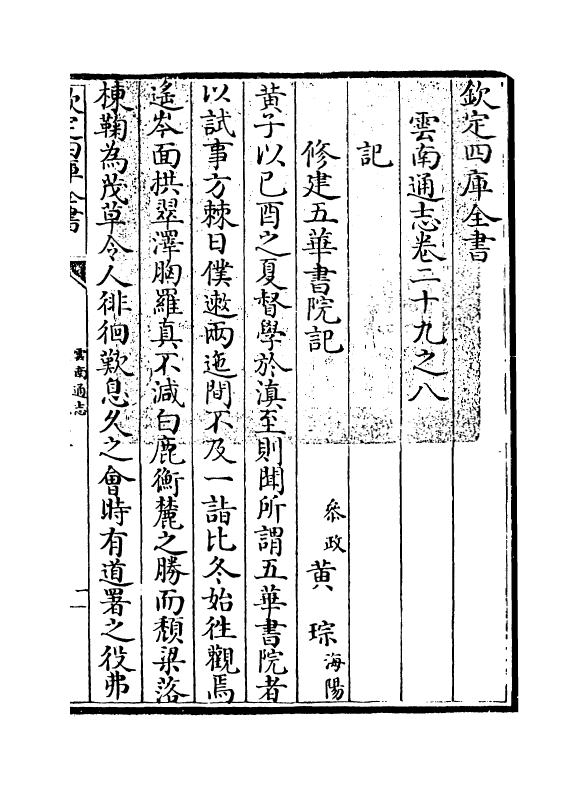 欽定四庫全書
雲南通志卷二十九之八
記
修建五華書院記
叅政黄琮海陽
黄子以己酉之夏督學於滇至則聞所謂五華書院者
以試事方棘日僕遬兩迤間不及一詣比冬始徃觀焉
遙岑面拱翠澤胸羅真不減白鹿衡麓之勝而頽梁落
棟鞠為茂草令人徘徊歎息久之會時有道署之役弗
欽定四庫全書
雲南通志